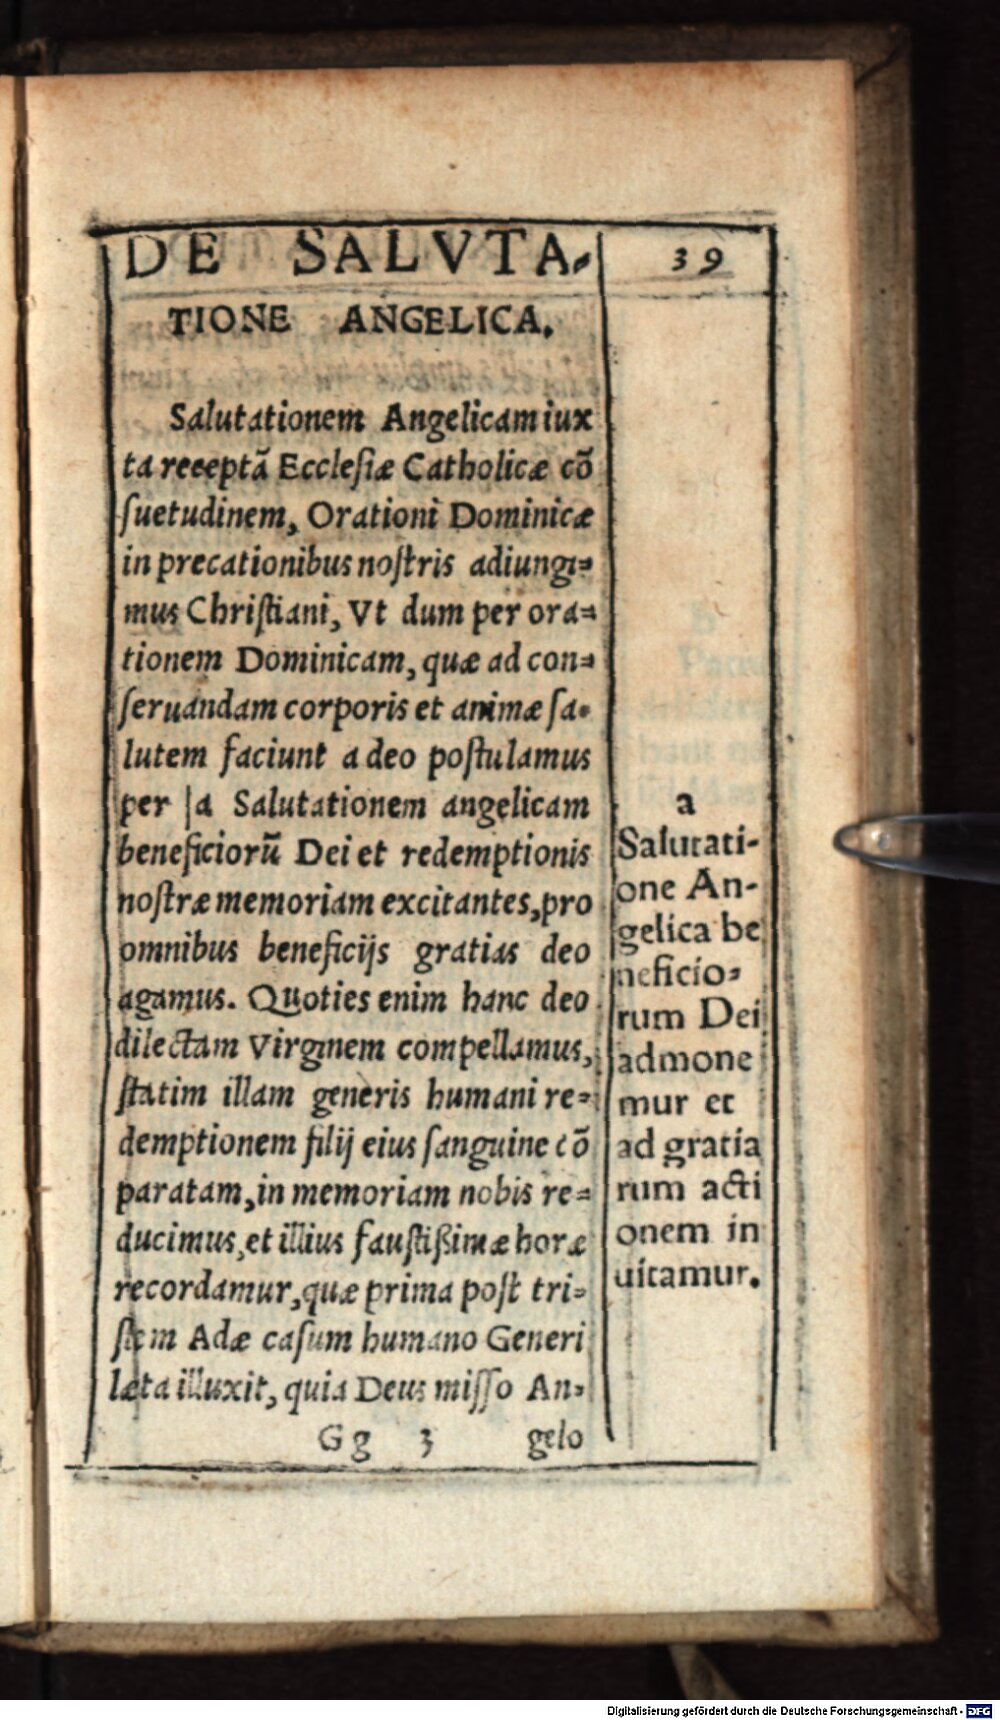 DE SALVTA-
39
TIONE ANGELICA.
Salutationem Angelicam iux
ta receptā Ecclesiæ Catholicæ cō
suetudinem, Orationi Dominicæ
in precationibus nostris adiungi=
mus Christiani, Vt dum per ora=
tionem Dominicam, quæ ad con=
seruandam corporis et animæ sa=
lutem faciunt a deo postulamus
per |a Salutationem angelicam
beneficiorū Dei et redemptionis
nostræ memoriam excitantes, pro
omnibus beneficijs gratias deo
agamus. Quoties enim hanc deo
dilectam Virginem compellamus,
statim illam generis humani re=
demptionem filij eius sanguine cō
paratam, in memoriam nobis re=
ducimus, et illius faustißimæ horæ
recordamur, quæ prima post tri=
stem Adæ casum humano Generi
læta illuxit, quia Deus misso An=
Gg 3 gelo
a
Salutati-
one An-
gelica be
neficio=
rum Dei
admone
mur et
ad gratia
rum acti
onem in
uitamur.
Digitalisierung gefördert durch die Deutsche Forschungsgemeinschaft - DFG